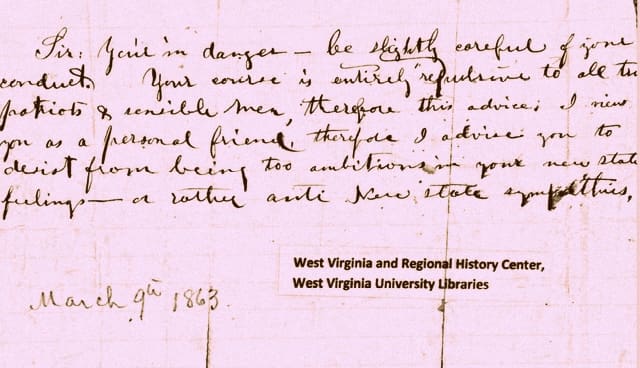 Sir: You'r in danger — be slightly careful of your
conduct. Your course is entirely repulsive to all tr
patriots & sensible men, therefore this advice; I view
you as a personal friend, therefore I advise you to
desist from being too ambitious in your new state
feelings — or rather anti New state sympathies,
West Virginia and Regional History Center,
West Virginia University Libraries
March 9th 1863.